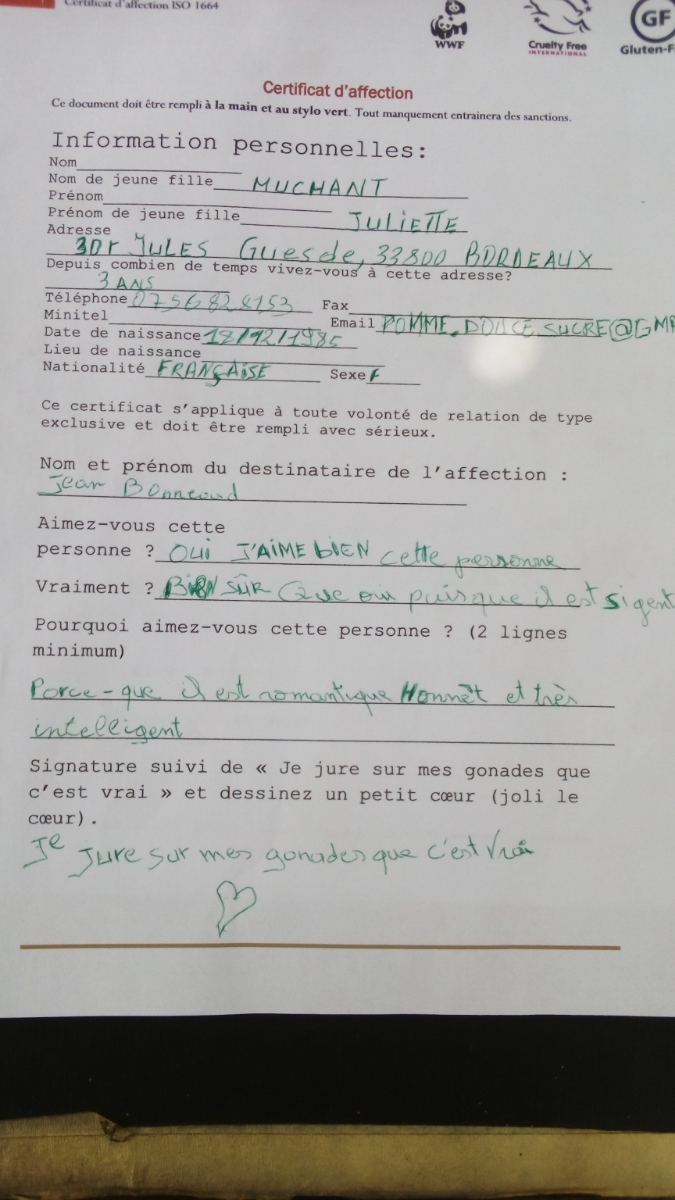 Certificat d'affection ISO 1664
WWF
Cruelty Free
INTERNATIONAL
GF
Gluten-F
Certificat d'affection
Ce document doit être rempli à la main et au stylo vert. Tout manquement entrainera des sanctions.
Information personnelles:
Nom
Nom de jeune fille MUCHANT
Prénom
Prénom de jeune fille JULIETTE
Adresse
30 r JULES Guesde, 33800 BORDEAUX
Depuis combien de temps vivez-vous à cette adresse?
3 ANS
Téléphone 0756828153 Fax
Minitel Email POMME.DOUCE.SUCRE@GMA
Date de naissance 18/12/1985
Lieu de naissance
Nationalité FRANÇAISE Sexe F
Ce certificat s'applique à toute volonté de relation de type
exclusive et doit être rempli avec sérieux.
Nom et prénom du destinataire de l'affection :
Jean Bonneaud
Aimez-vous cette
personne ? OUI J'AIME bIEN cette personne
Vraiment ? BIEN SÛR Que oui puisque il est si gent
Pourquoi aimez-vous cette personne ? (2 lignes
minimum)
Parce-que il est romantique Honnêt et très
intelligent
Signature suivi de « Je jure sur mes gonades que
c'est vrai » et dessinez un petit cœur (joli le
cœur).
Je jure sur mes gonades que c'est Vrai